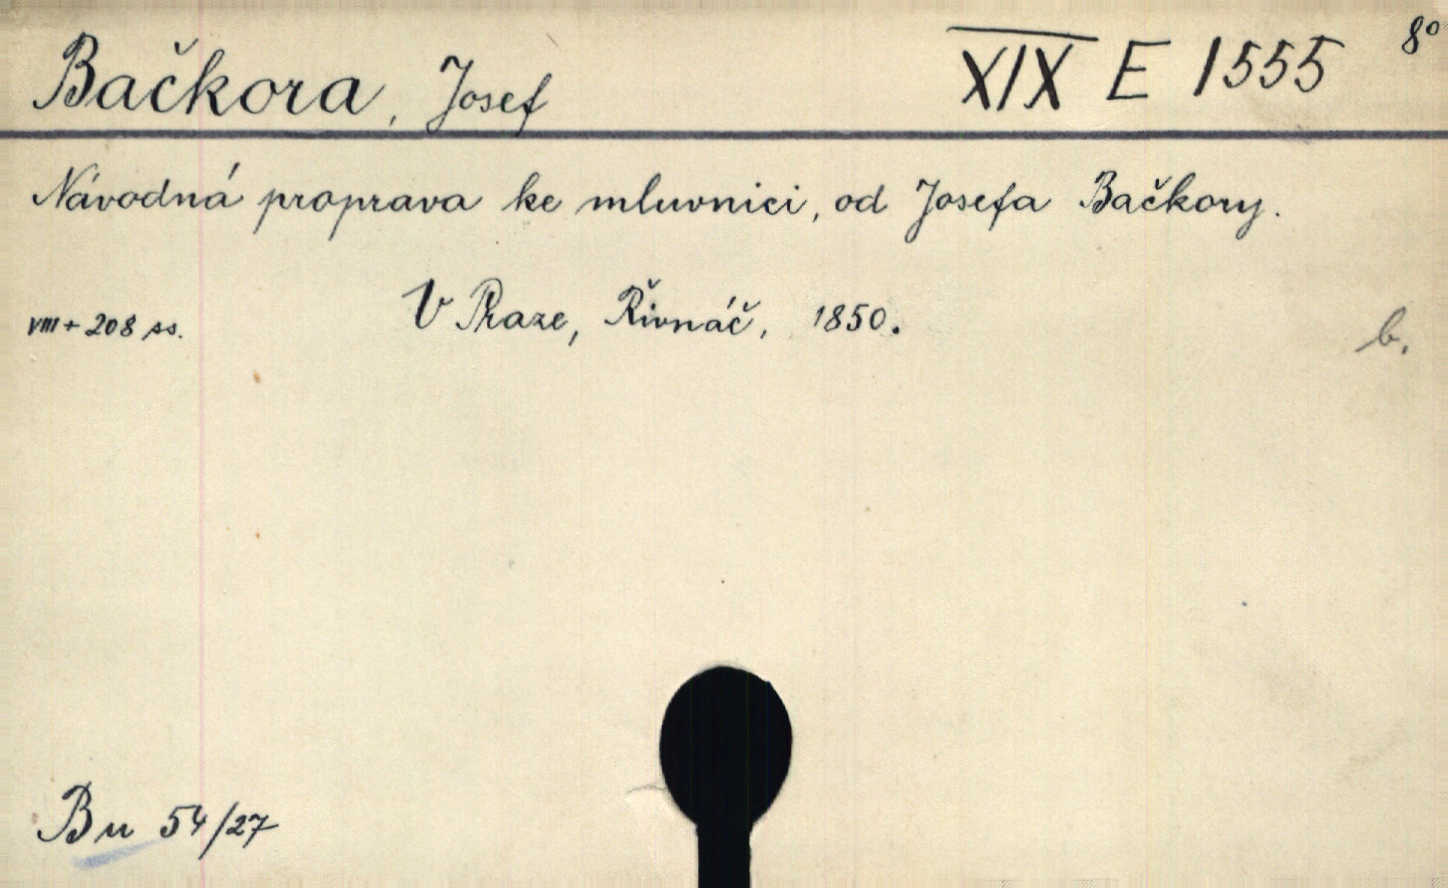 Bačkora, Josef XIX E 1555 8°
Návodná proprava ke mluvnici, od Josefa Bačkory.
VIII + 208 ss. V Praze, Řivnáč, 1850. b.
Bu 54/27